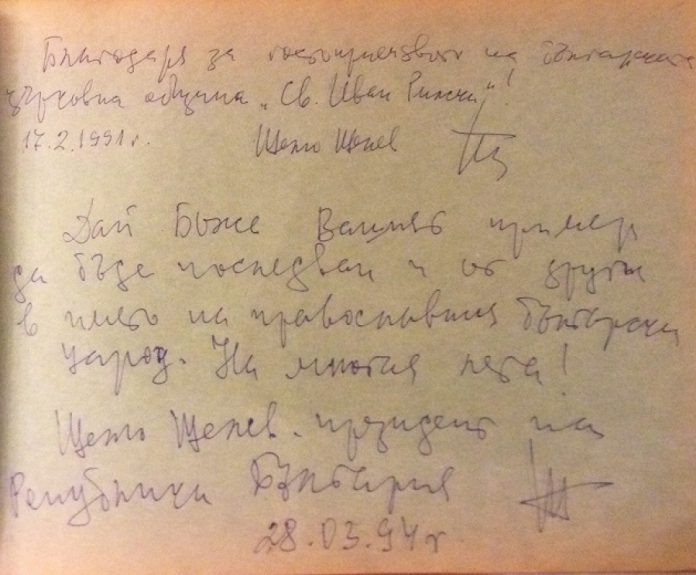 Благодаря за гостоприемството на българската
църковна община "Св. Иван Рилски"!
17.2.1991г. Щ Щ
Дай Боже Вашият пример
да бъде последван и от други
в името на православния български
народ. На многая лета!
президент на
Република България
28.03.94г